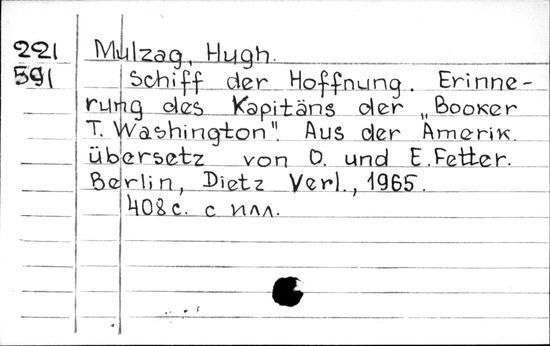 221 Mulzag, Hugh.
591 Schiff der Hoffnung. Erinne-
rung des Kapitäns der „Booker
T. Washington". Aus der Amerik.
übersetz von O. und E. Fetter.
Berlin, Dietz Verl., 1965.
408 с. с илл.